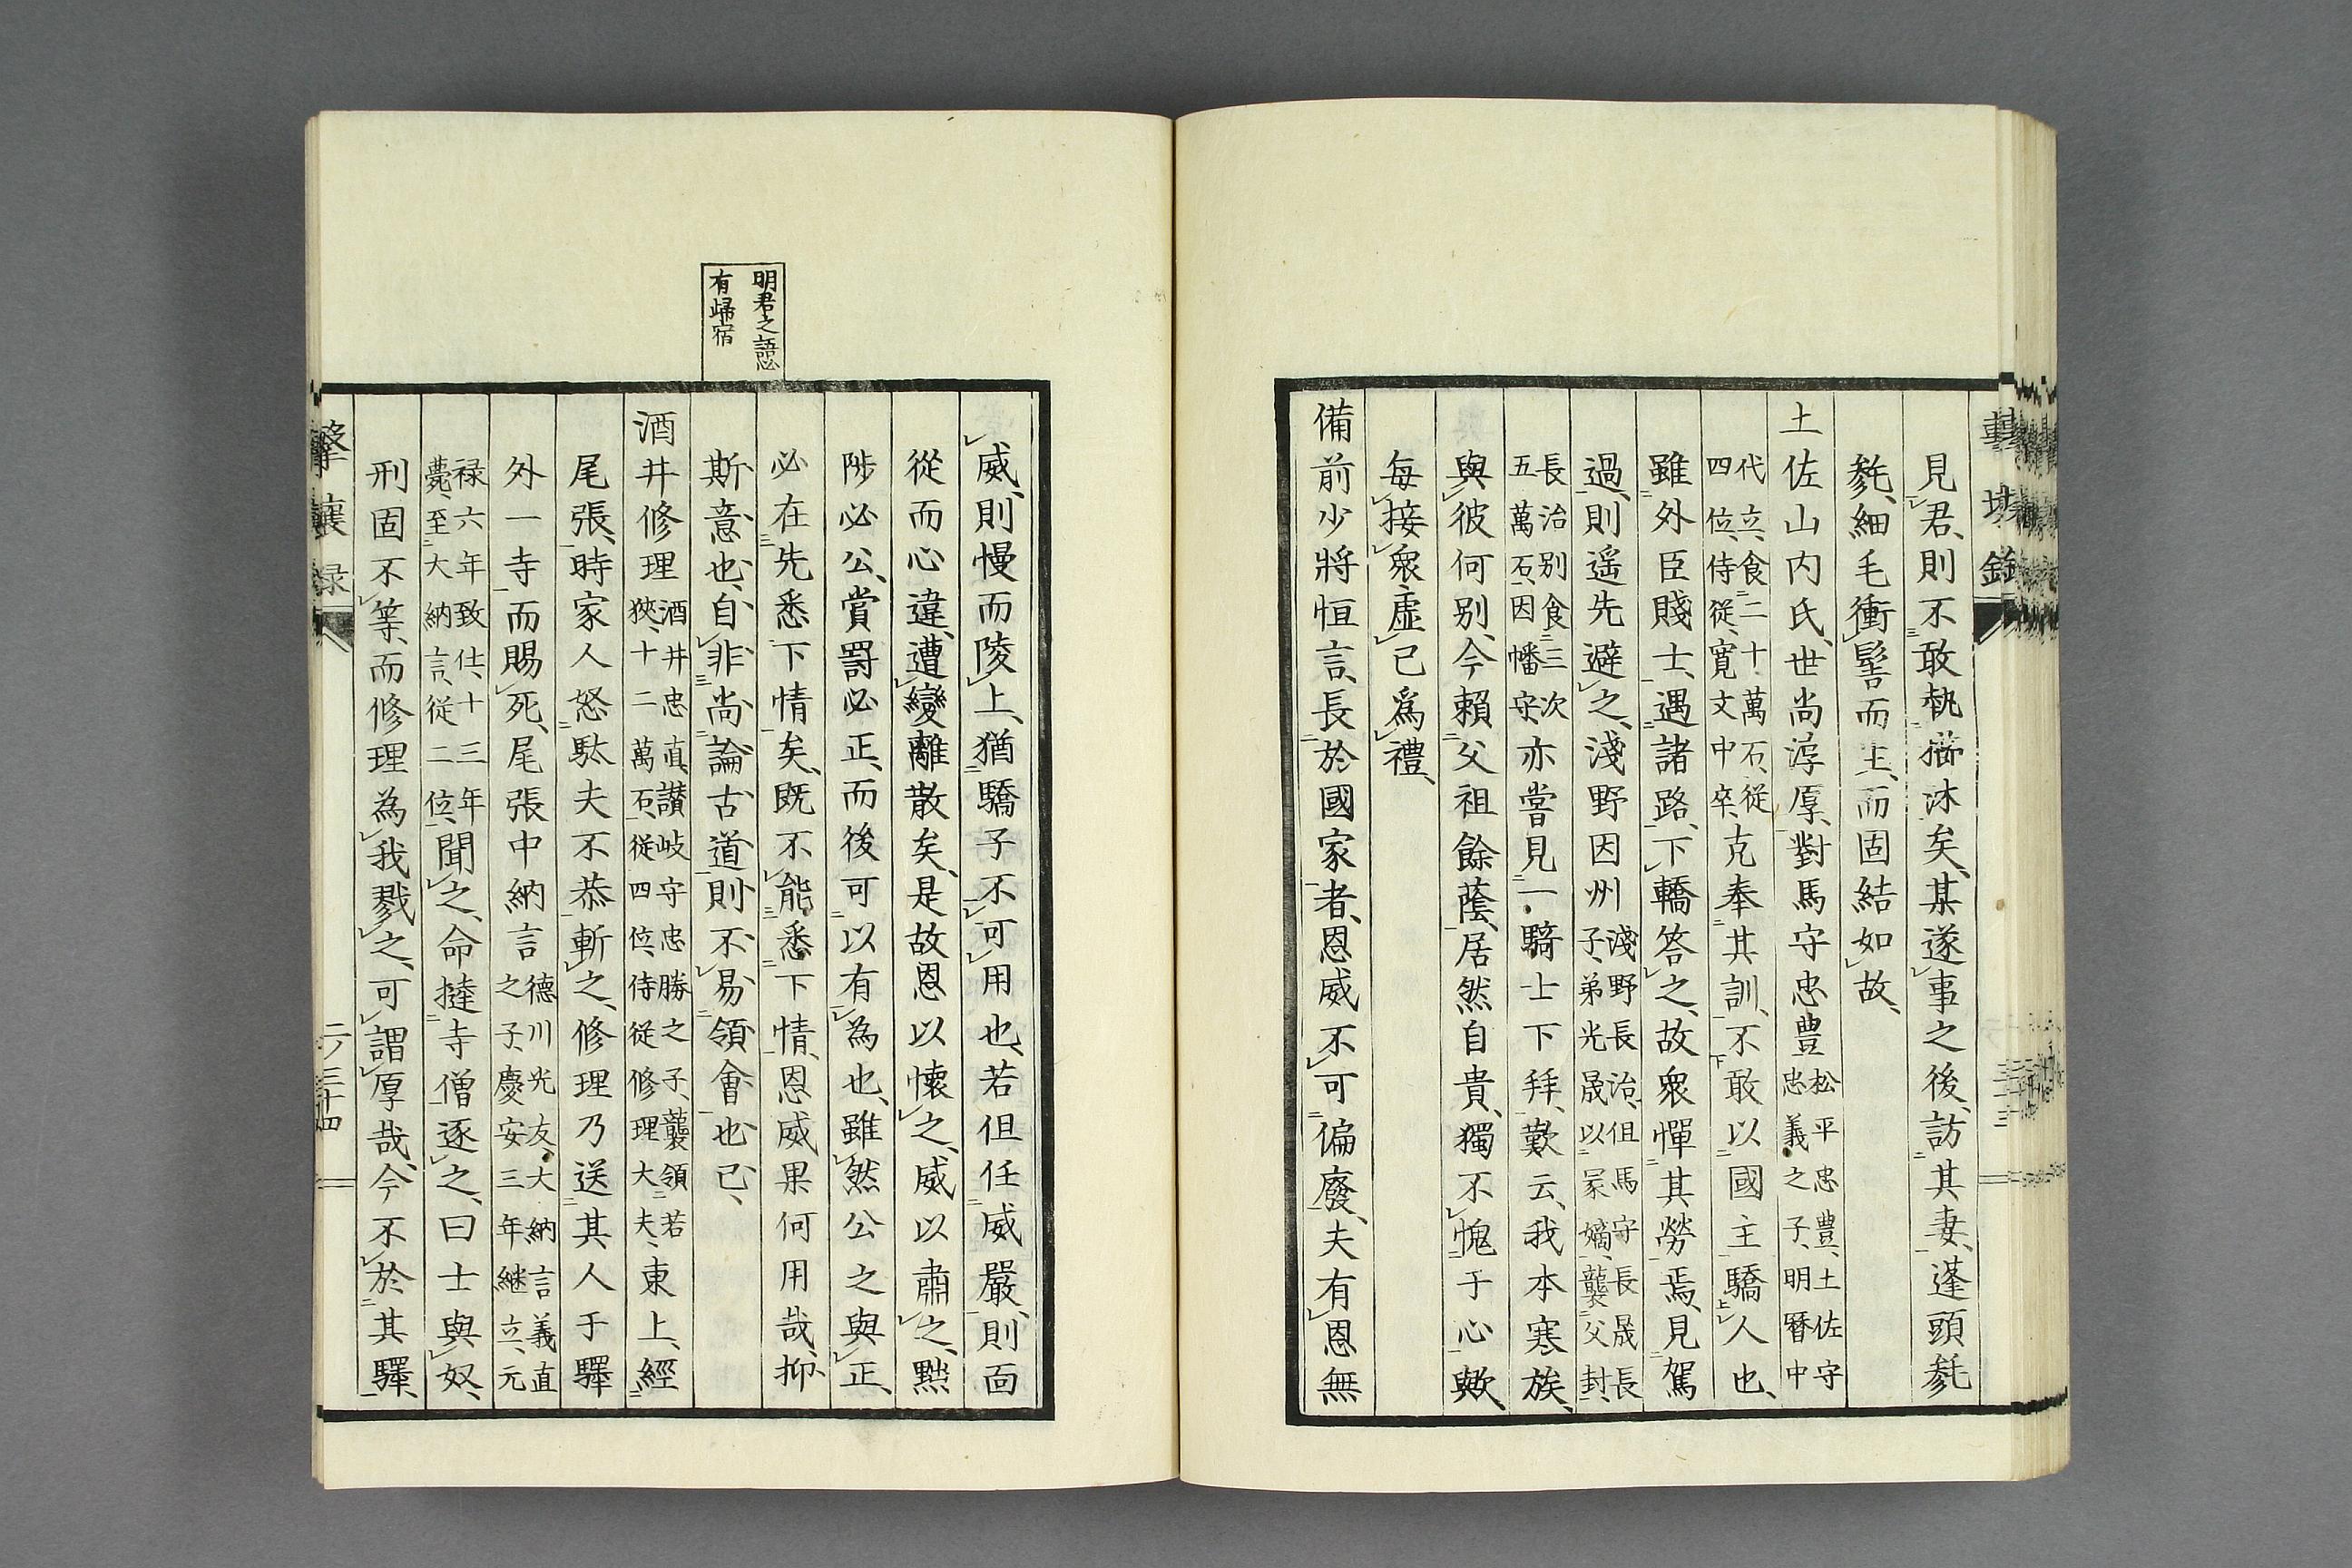 見君、則不敢執櫛沐矣、某遂事之後、訪其妻、蓬頭毿
毿、細毛衝髻而生、而固結如故、
土佐山内氏、世尚淳厚、對馬守忠豊松平忠豊、土佐守忠義之子、明曆中
代立、食二十萬石、從四位、侍從、寛文中卒、克奉其訓、不敢以國主驕人也、
雖外臣賤士、遇諸路、下轎答之、故衆憚其勞焉、見駕
過、則遥先避之、淺野因州淺野長治、但馬守長晟長子、弟光晟以冢嫡、襲父封、
長治別食三次五萬石、因幡守、亦嘗見一騎士下拜、歎云、我本寒族、
與彼何別、今賴父祖餘蔭、居然自貴、獨不愧于心歟、
每接衆虛己爲禮、
備前少將恒言、長於國家者、恩威不可偏廢、夫有恩無
威、則慢而陵上、猶驕子不可用也、若但任威嚴、則面
從而心違、遭變離散矣、是故恩以懷之、威以肅之、黜
陟必公、賞罰必正、而後可以有為也、雖然公之與正、
必在先悉下情矣、既不能悉下情、恩威果何用哉、抑
斯意也、自非尚論古道則不易領會也已、
酒井修理酒井忠直、讃岐守忠勝之子、襲領若狹、十二萬石、從四位、侍從修理大夫、東上、經
尾張、時家人怒馱夫不恭斬之、修理乃送其人于驛
外一寺而賜死、尾張中納言德川光友、大納言義直之子、慶安三年継立、元
禄六年致仕、十三年薨、至大納言、從二位、聞之、命撻寺僧逐之、曰士與奴、
刑固不等、而修理為我戮之、可謂厚哉、今不於其驛、
明君之語必
有歸宿
擊壤録
二ノ三十四